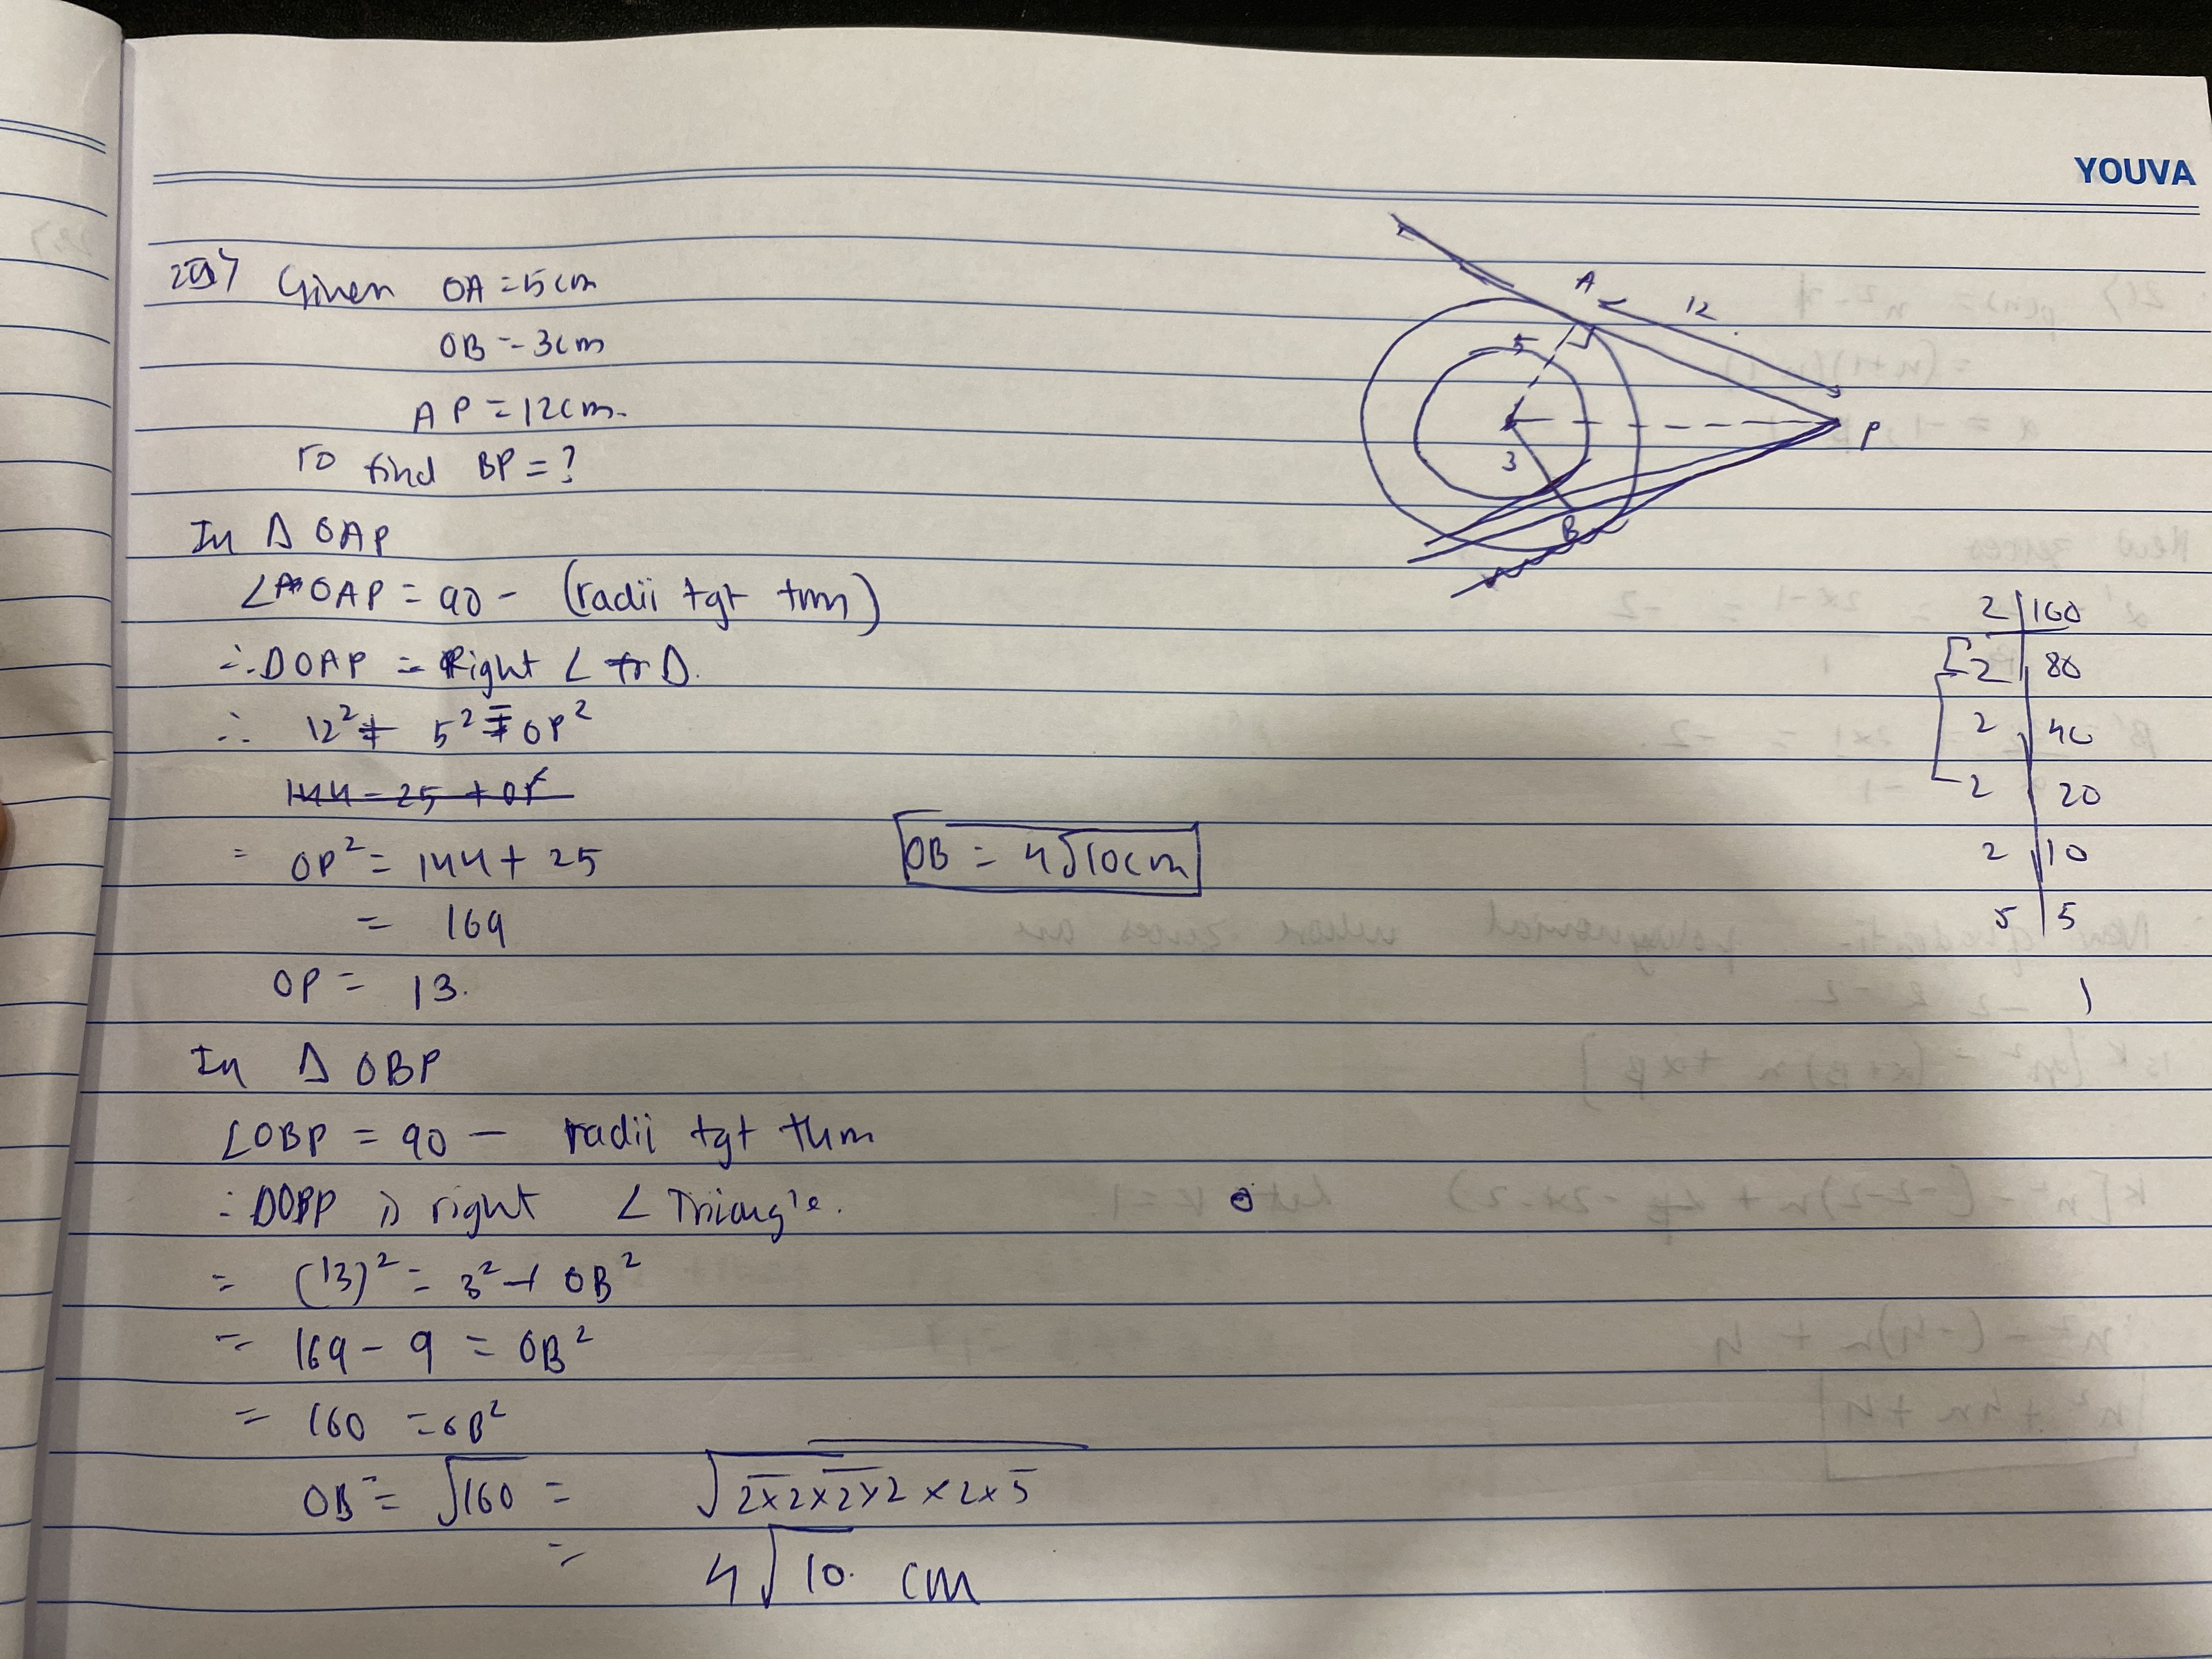 YOUVA
Given OA = 5cm
OB = 3cm
AP = 12cm.
To find BP = ?
In Δ OAP
∠OAP = 90 - (radii tgt thm)
∴ ΔOAP = Right ∠ Δ.
∴ 12² + 5² = OP²
144 - 25 + OP
= OP² = 144 + 25
= 169
OP = 13.
In Δ OBP
∠OBP = 90 — radii tgt thm
∴ ΔOBP is right ∠ Triangle.
= (13)² = 3² + OB²
= 169 - 9 = OB²
= 160 = OB²
OB = √160 = √2×2×2×2×2×5
= 4√10. cm
OB = 4√10cm
A
12
5
P
3
B
2 | 160
2 | 80
2 | 40
2 | 20
2 | 10
5 | 5
1